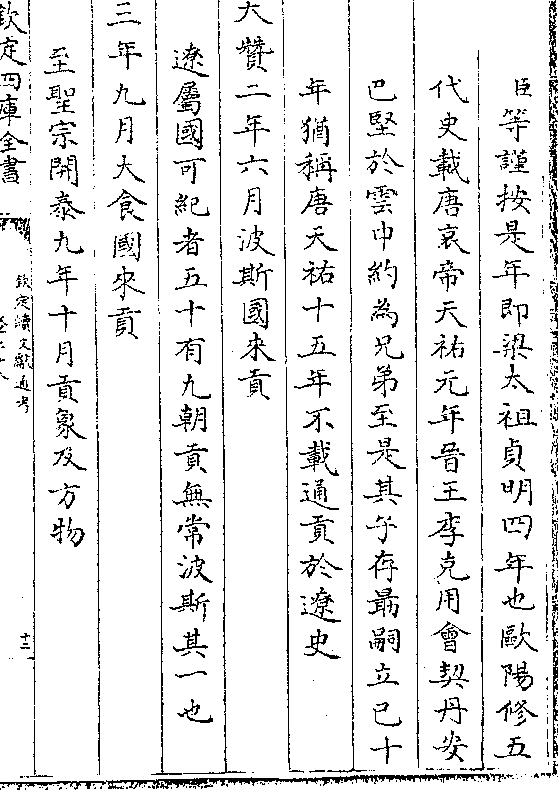 臣等謹按是年即梁太祖貞明四年也歐陽修五
代史載唐哀帝天祐元年晉王李克用會契丹安
巴堅於雲中約為兄弟至是其子存朂嗣立已十
年猶稱唐天祐十五年不載通貢於遼史
大贊二年六月波斯國來貢
遼屬國可紀者五十有九朝貢無常波斯其一也
三年九月大食國來貢
至聖宗開泰九年十月貢象及方物
欽定四庫全書
欽定續文獻通考
十二